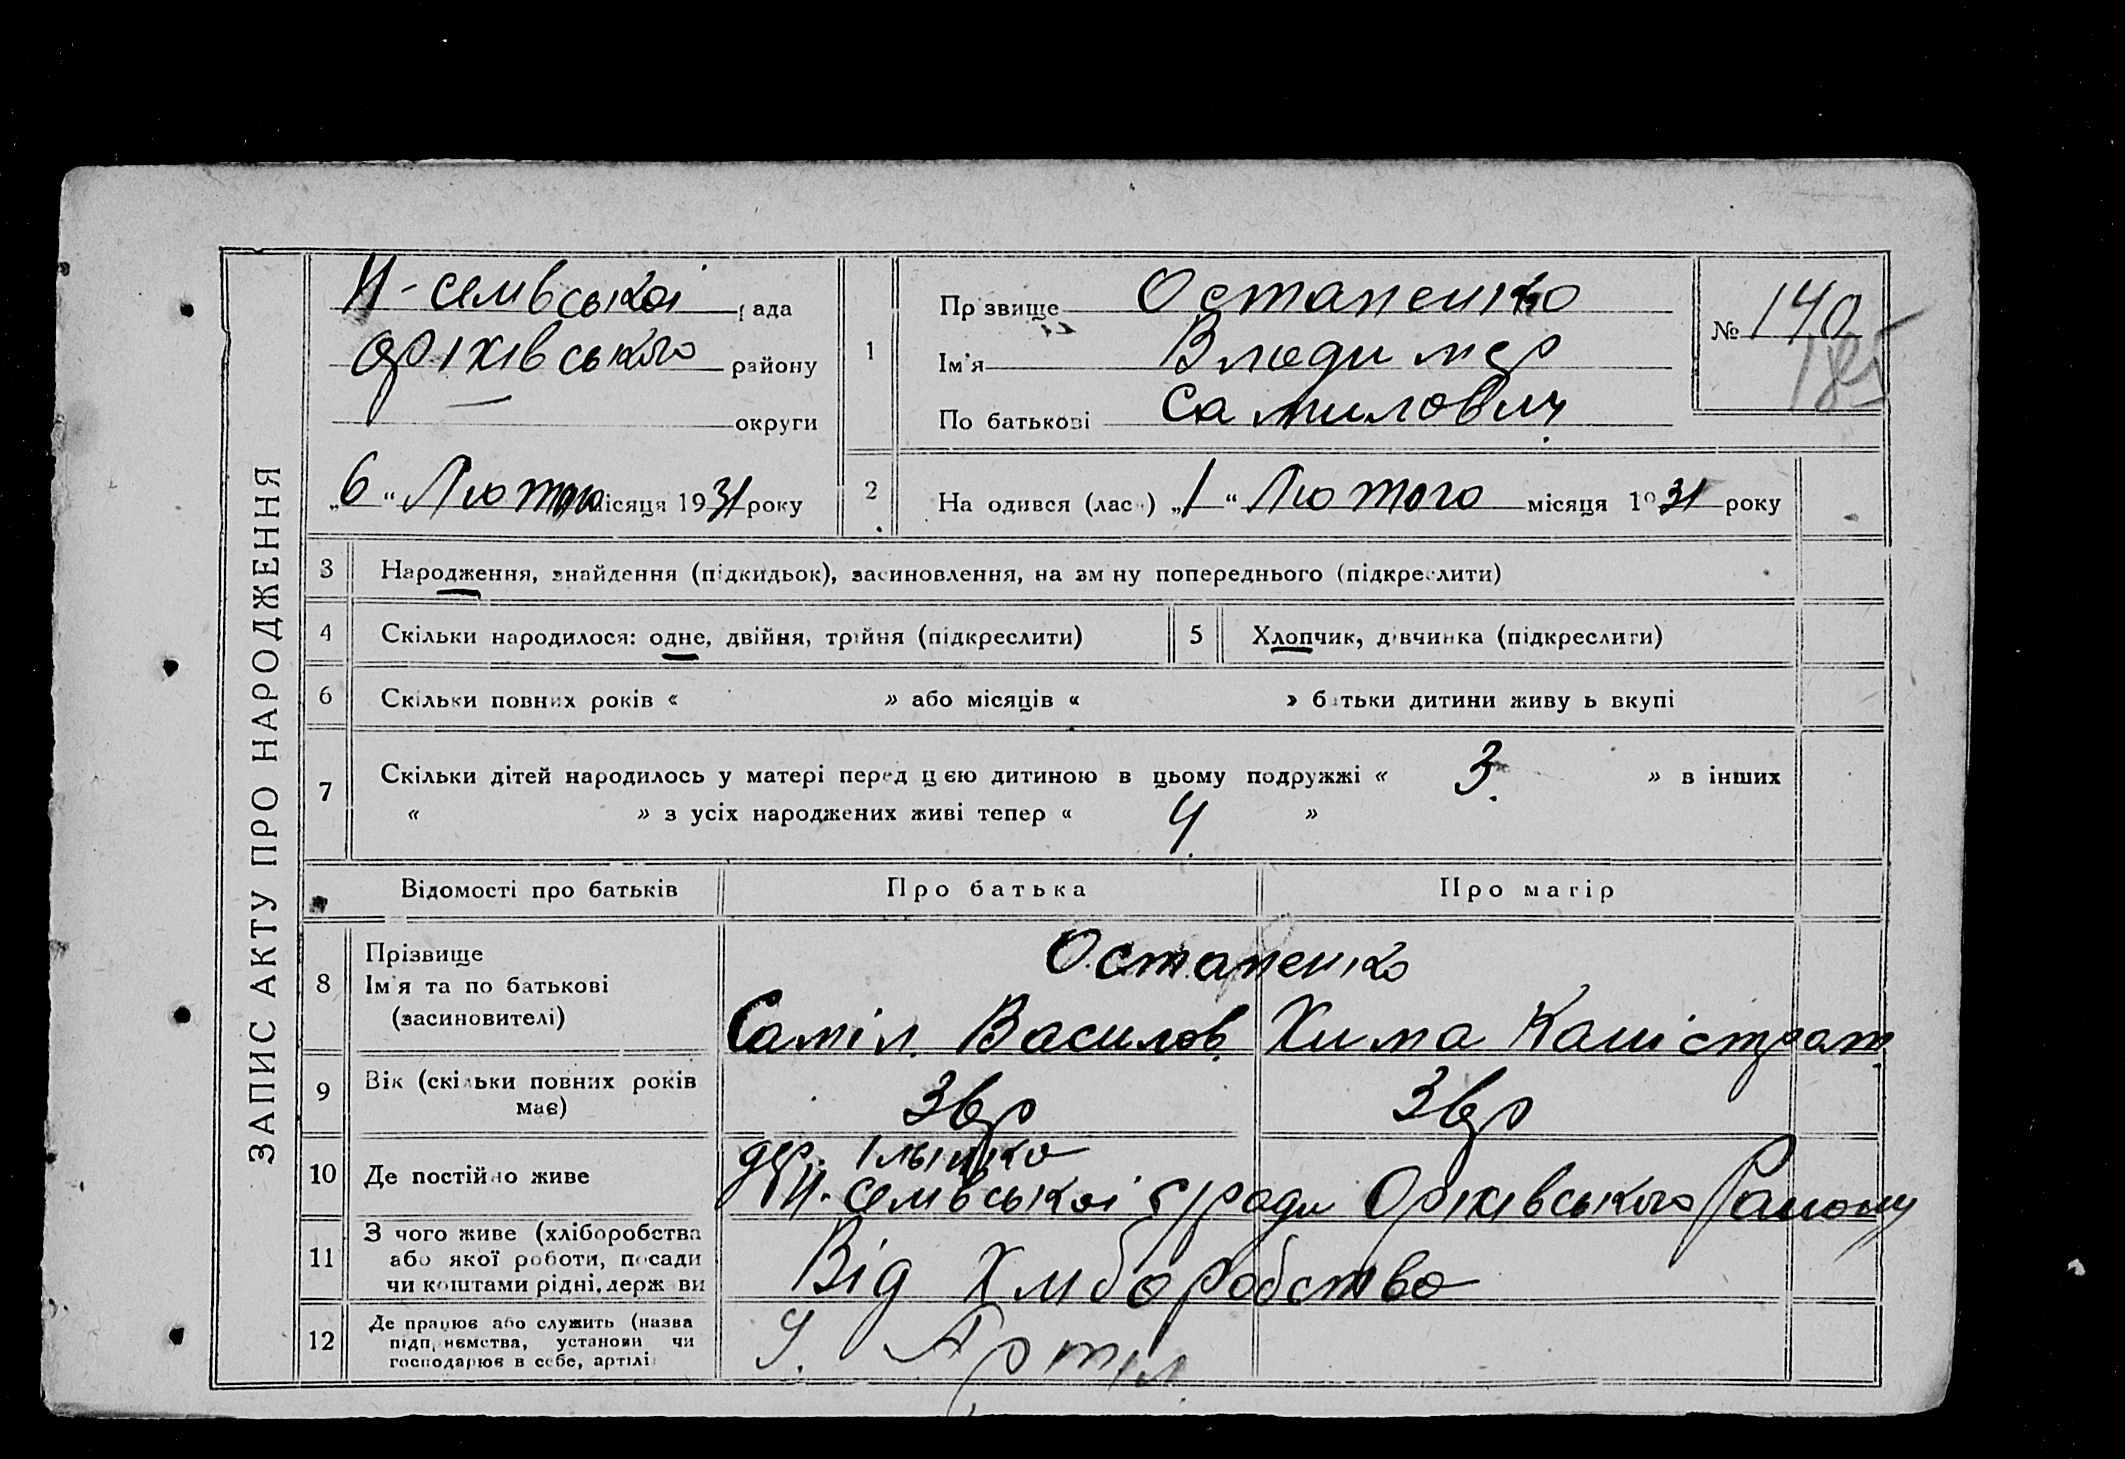 ЗАПИС АКТУ ПРО НАРОДЖЕННЯ
И-семвської рада
Оріхівського району
округи
„6“ Лютого місяця 1931 року
1
Прізвище Остапенко
Ім'я Володимер
По батькові Самилович
№ 140
185
2
Народився (лась) „1“ Лютого місяця 1931 року
3 Народження, знайдення (підкидьок), засиновлення, на зміну попереднього (підкреслити)
4 Скільки народилося: одне, двійня, трійня (підкреслити)
5 Хлопчик, дівчинка (підкреслити)
6 Скільки повних років « » або місяців « » батьки дитини живуть вкупі
7 Скільки дітей народилось у матері перед цією дитиною в цьому подружжі « 3 » в інших
« » з усіх народжених живі тепер « 4 »
Відомості про батьків Про батька Про матір
8 Прізвище
Ім'я та по батькові
(засиновителі)
Остапенко
Саміл. Василов. Хима
9 Вік (скільки повних років має)
10 Де постійно живе
И. семвської с/ради Оріхівського Району
11 З чого живе (хліборобства
або якої роботи, посади
чи коштами рідні, держави
Від Хліборобство
12 Де працює або служить (назва
підприємства, установи чи
господарює в себе, артілі
У. Артіл.